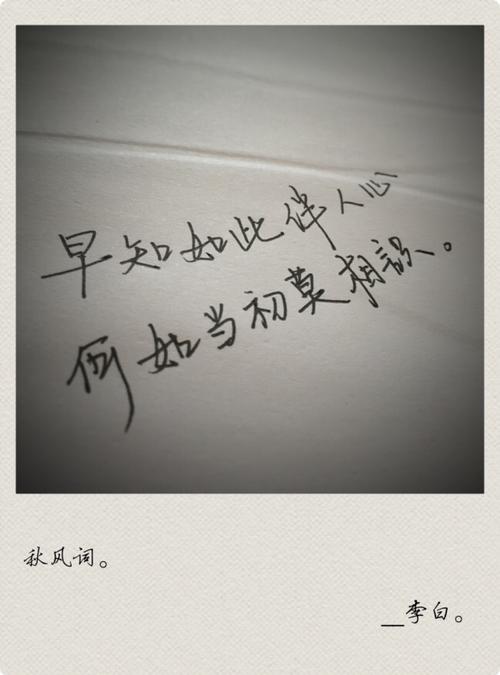 早知如此伴人心
何如当初莫相识、。
秋风词。
__李白。